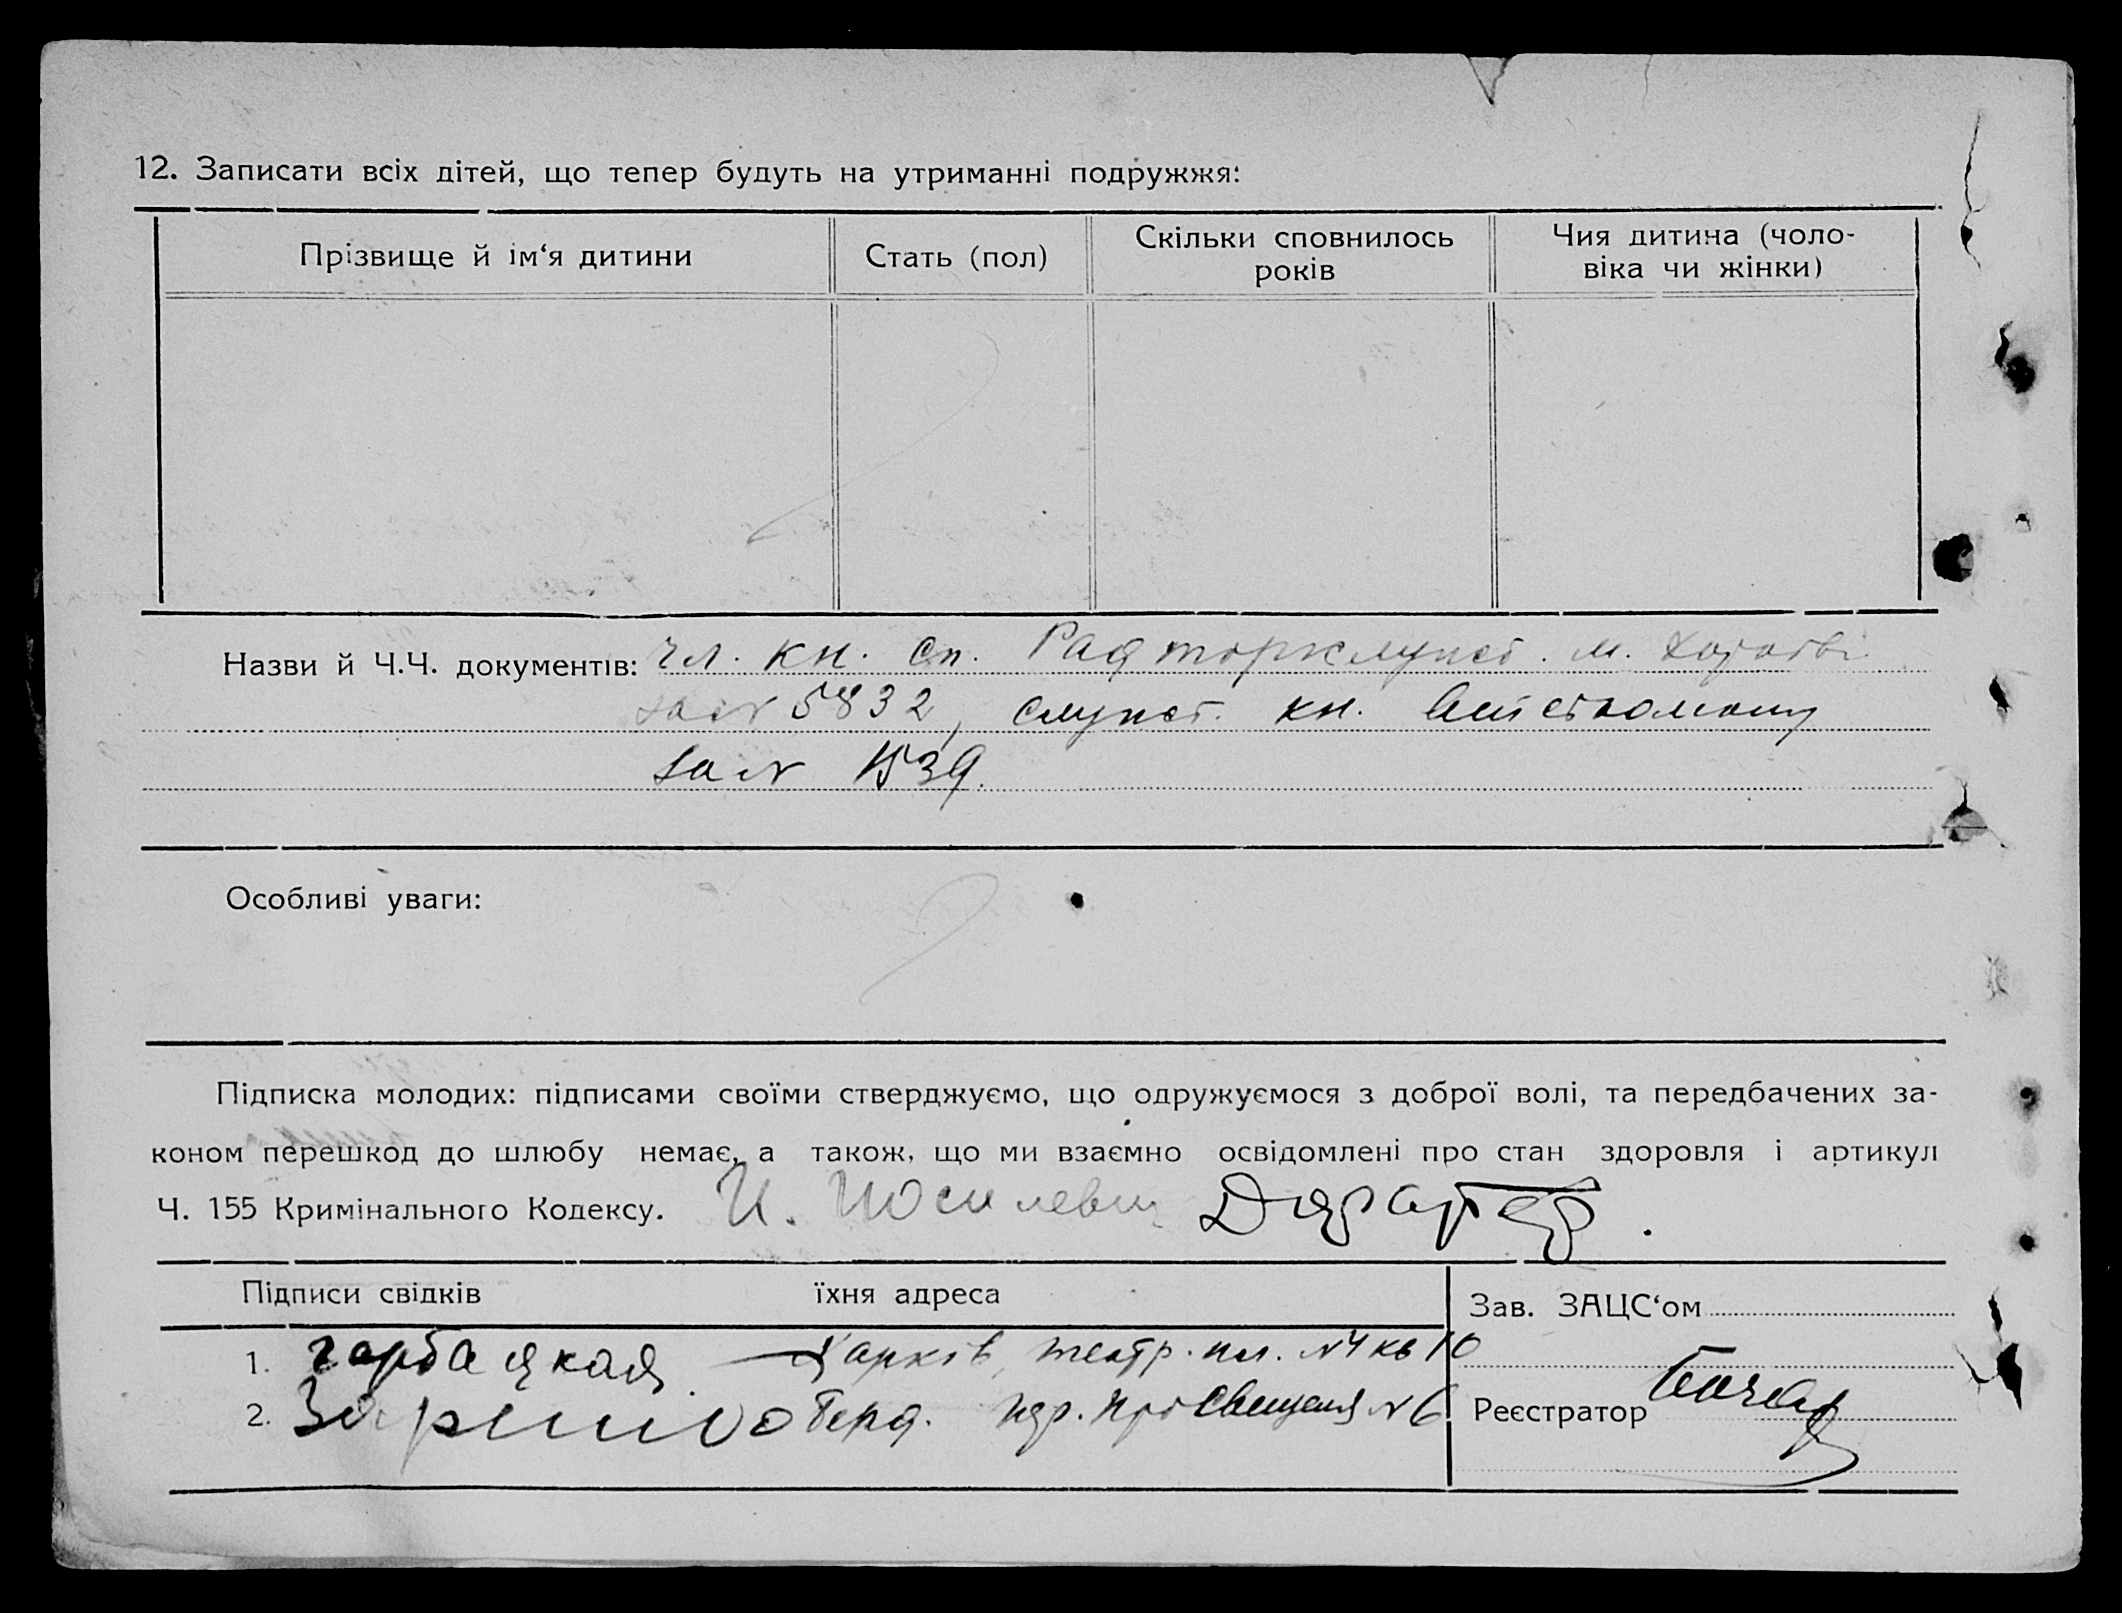 12. Записати всіх дітей, що тепер будуть на утриманні подружжя:
Прізвище й ім‘я дитини
Стать (пол)
Скільки сповнилось
років
Чия дитина (чоло-
віка чи жінки)
Назви й Ч.Ч. документів: чл. кн. сп. Радторгслужб. м. Харкові
за № 5832, служб. кн.
за № 1539.
Особливі уваги:
Підписка молодих: підписами своїми стверджуємо, що одружуємося з доброї волі, та передбачених за-
коном перешкод до шлюбу немає, а також, що ми взаємно освідомлені про стан здоровля і артикул
Ч. 155 Кримінального Кодексу. И. Иосилевич
Підписи свідків їхня адреса
Зав. ЗАЦС‘ом
1. Горбацкая Харків, театр. пл. № 4 кв 10
2. пр. Просвещения № 6
Реєстратор